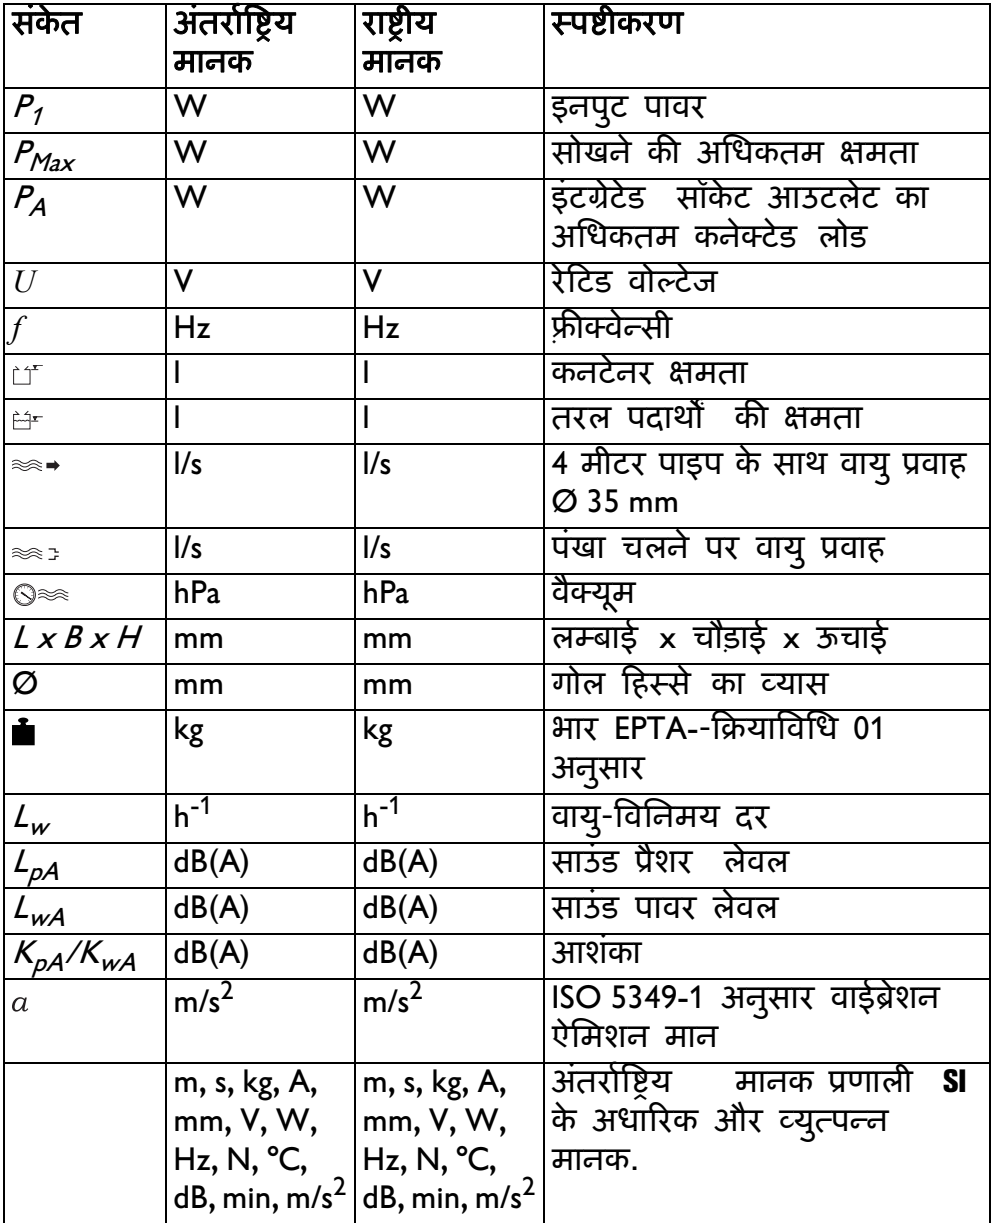 संकेत अंतर्राष्ट्रिय राष्ट्रीय स्पष्टीकरण
मानक मानक
P1 W W इनपुट पावर
PMax W W सोखने की अधिकतम क्षमता
PA W W इंटग्रेटेड सॉकेट आउटलेट का
अधिकतम कनेक्टेड लोड
U V V रेटिड वोल्टेज
f Hz Hz फ़्रीक्वेन्सी
l l कनटेनर क्षमता
l l तरल पदार्थों की क्षमता
l/s l/s 4 मीटर पाइप के साथ वायु प्रवाह
Ø 35 mm
l/s l/s पंखा चलने पर वायु प्रवाह
hPa hPa वैक्यूम
L x B x H mm mm लम्बाई x चौड़ाई x ऊचाई
Ø mm mm गोल हिस्से का व्यास
kg kg भार EPTA--क्रियाविधि 01
अनुसार
Lw h-1 h-1 वायु-विनिमय दर
LpA dB(A) dB(A) साउंड प्रैशर लेवल
LwA dB(A) dB(A) साउंड पावर लेवल
KpA/KwA dB(A) dB(A) आशंका
a m/s2 m/s2 ISO 5349-1 अनुसार वाईब्रेशन
ऐमिशन मान
m, s, kg, A, m, s, kg, A, अंतर्राष्ट्रिय मानक प्रणाली SI
mm, V, W, mm, V, W, के अधारिक और व्युत्पन्न
Hz, N, °C, Hz, N, °C, मानक.
dB, min, m/s2 dB, min, m/s2